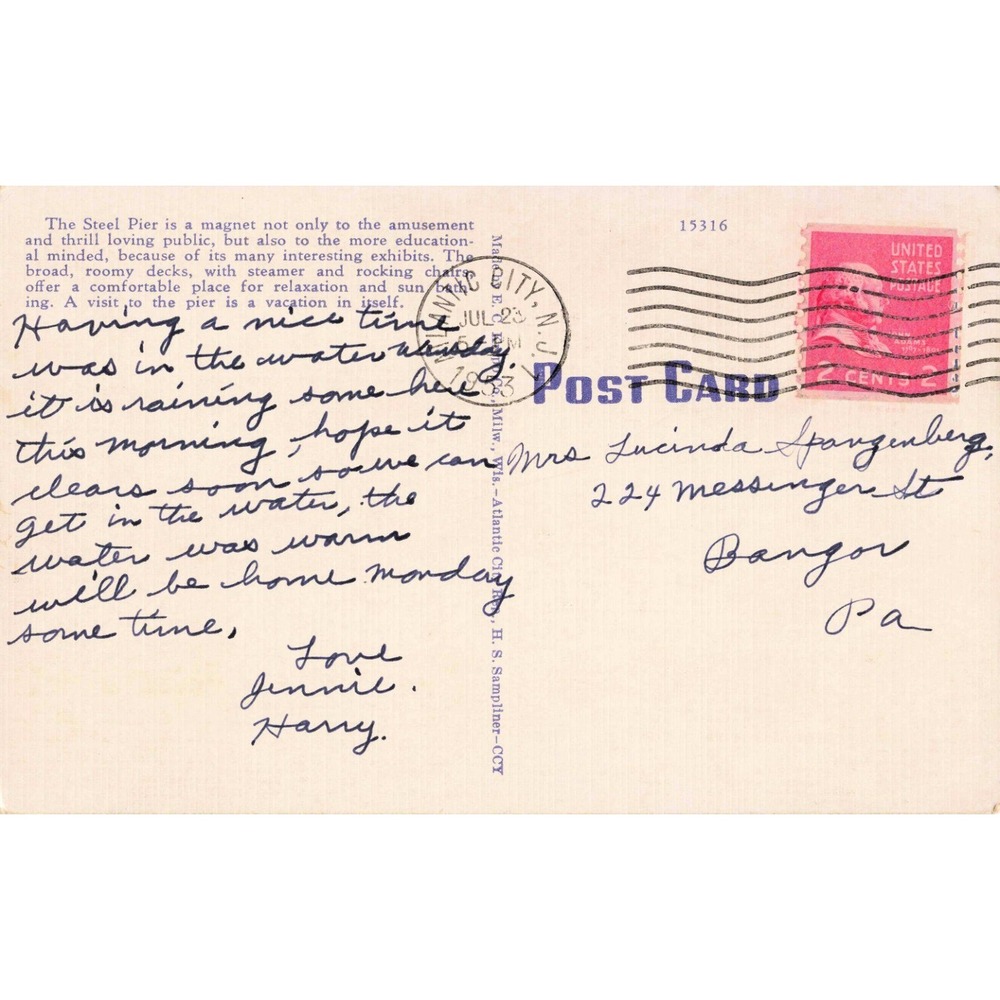 The Steel Pier is a magnet not only to the amusement
and thrill loving public, but also to the more education-
al minded, because of its many interesting exhibits. The
broad, roomy decks, with steamer and rocking chairs,
offer a comfortable place for relaxation and sun bath-
ing. A visit to the pier is a vacation in itself.
Having a nice time
was in the water
it is raining some here
this morning, hope it
clears soon so we can
get in the water, the
water was warm
will be home Monday
some time,
Love
Jennie.
Harry.
Made by E. C. Milw., Wis.-Atlantic City H. S. Sampliner-CCY
ATLANTIC CITY, N.J.
JUL 23
PM
1953
15316
POST CARD
UNITED
STATES
POSTAGE
JOHN
ADAMS
2 CENTS 2
Mrs Lucinda Spangenberg,
224 Messenger St
Bangor
Pa